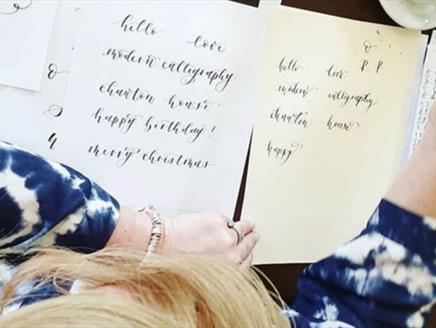 hello love
modern calligraphy
chawton house
happy birthday!
merry christmas
hello love
modern calligraphy
chawton house
happy